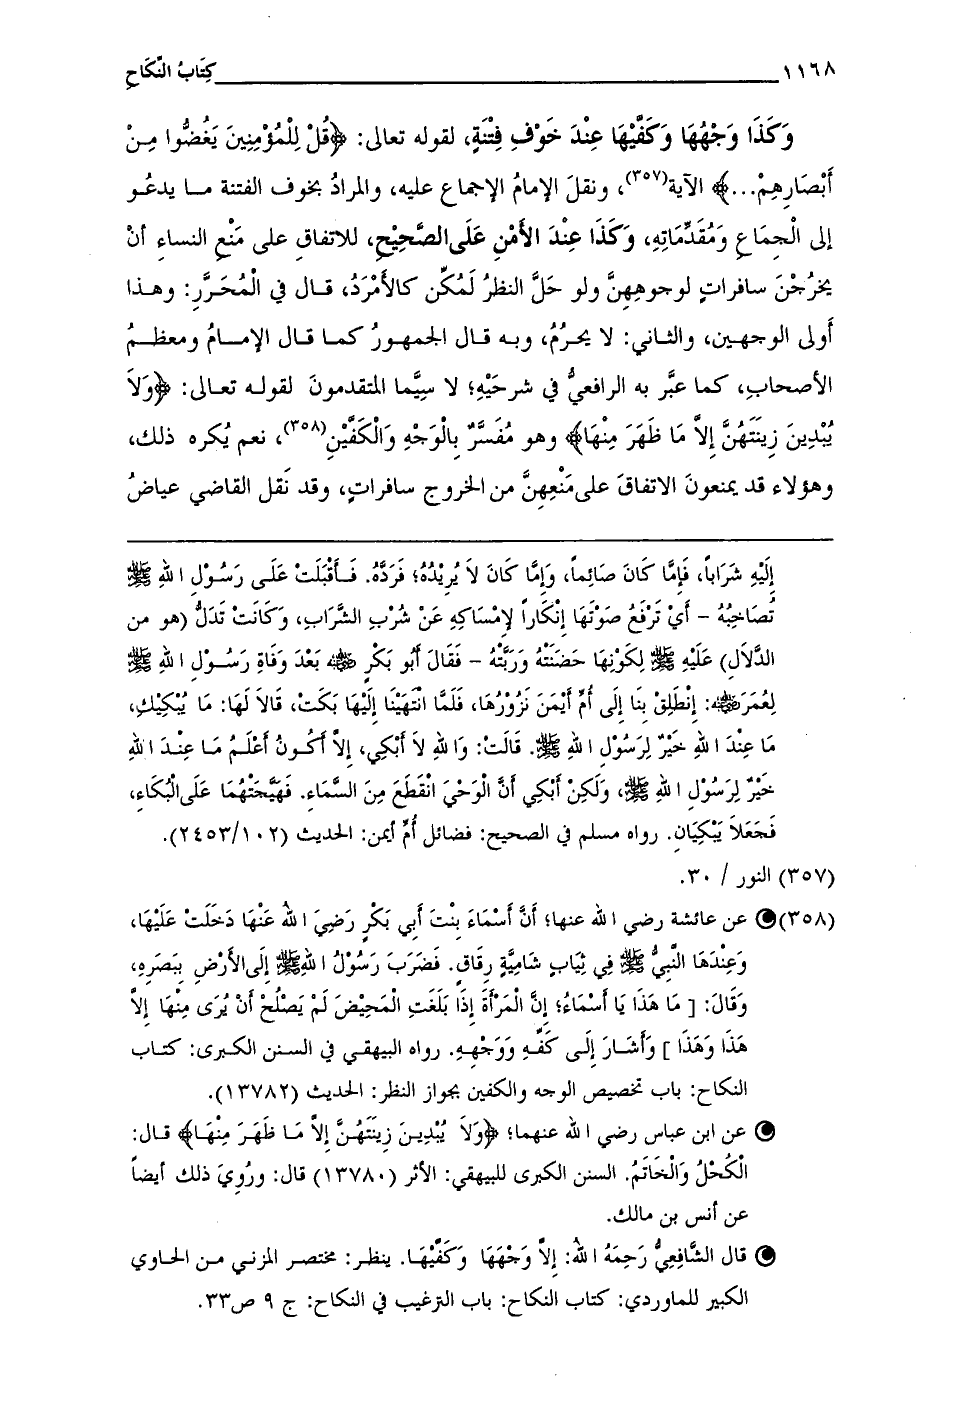 ١١٦٨ كِتَابُ النِّكَاحِ
وَكَذَا وَجْهُهَا وَكَفَّيْهَا عِنْدَ خَوْفِ فِتْنَةٍ، لقوله تعالى: ﴿قُلْ لِلْمُؤْمِنِينَ يَغُضُّوا مِنْ
أَبْصَارِهِمْ...﴾ الآية(٣٥٧)، ونقلَ الإمامُ الإجماع عليه، والمرادُ بخوف الفتنة ما يدعُو
إلى الْجِمَاعِ وَمُقَدِّمَاتِهِ، وَكَذَا عِنْدَ الأَمْنِ عَلَى الصَّحِيْحِ، للاتفاقِ على مَنْعِ النساءِ أنْ
يخرُجْنَ سافراتٍ لوجوهِهِنَّ ولو حَلَّ النظرُ لَمُكِّن كالأَمْرَدُ، قال في الْمُحَرَّرِ: وهذا
أولى الوجهين، والثاني: لا يحرُمُ، وبه قال الجمهورُ كما قال الإمامُ ومعظمُ
الأصحابِ، كما عبَّر به الرافعيُّ في شرحَيْهِ؛ لا سِيَّما المتقدمونَ لقوله تعالى: ﴿وَلاَ
يُبْدِينَ زِينَتَهُنَّ إِلاَّ مَا ظَهَرَ مِنْهَا﴾ وهو مُفَسَّرٌ بِالْوَجْهِ وَالْكَفَّيْنِ(٣٥٨)، نعم يُكره ذلك،
وهؤلاء قد يمنعونَ الاتفاقَ على مَنْعِهِنَّ من الخروج سافراتٍ، وقد نَقل القاضي عياضُ
إِلَيْهِ شَرَاباً، فَإِمَّا كَانَ صَائِماً، وَإِمَّا كَانَ لاَ يُرِيْدُهُ؛ فَرَدَّهُ. فَأَقْبَلَتْ عَلَى رَسُوْلِ اللهِ ﷺ
تُصَاخِبُهُ - أَيْ تَرْفَعُ صَوْتَهَا إِنْكَاراً لإِمْسَاكِهِ عَنْ شُرْبِ الشَّرَابِ، وَكَانَتْ تَدَلُّ (هو من
الدَّلَالِ) عَلَيْهِ ﷺ لِكَوْنِهَا حَضَنَتْهُ وَرَبَّتْهُ - فَقَالَ أَبُو بَكْرٍ ﷺ بَعْدَ وَفَاةِ رَسُوْلِ اللهِ ﷺ
لِعُمَرَ ﷺ: إِنْطَلِقْ بِنَا إِلَى أُمِّ أَيْمَنَ نَزُوْرُهَا، فَلَمَّا انْتَهَيْنَا إِلَيْهَا بَكَتْ، قَالاَ لَهَا: مَا يُبْكِيْكِ،
مَا عِنْدَ اللهِ خَيْرٌ لِرَسُوْلِ اللهِ ﷺ. قَالَتْ: وَاللهِ لاَ أَبْكِي، إِلاَّ أَكُونُ أَعْلَمُ مَا عِنْدَ اللهِ
خَيْرٌ لِرَسُوْلِ اللهِ ﷺ، وَلَكِنْ أَبْكِي أَنَّ الْوَحْيَ انْقَطَعَ مِنَ السَّمَاءِ. فَهَيَّجَتْهُمَا عَلَى الْبُكَاءِ،
فَجَعَلاَ يَبْكِيَانِ. رواه مسلم في الصحيح: فضائل أُمِّ أيمن: الحديث (٢٤٥٣/١٠٢).
(٣٥٧) النور / ٣٠.
(٣٥٨) عن عائشة رضي الله عنها؛ أَنَّ أَسْمَاءَ بِنْتَ أَبِي بَكْرٍ رَضِيَ اللهُ عَنْهَا دَخَلَتْ عَلَيْهَا،
وَعِنْدَهَا النَّبِيُّ ﷺ فِي ثِيَابٍ شَامِيَّةٍ رِقَاقٍ. فَضَرَبَ رَسُوْلُ اللهِ ﷺ إِلَى الأَرْضِ بِبَصَرِهِ،
وَقَالَ: [ مَا هَذَا يَا أَسْمَاءُ؛ إِنَّ الْمَرْأَةَ إِذَا بَلَغَتِ الْمَحِيْضَ لَمْ يَصْلُحْ أَنْ يُرَى مِنْهَا إِلاَّ
هَذَا وَهَذَا ] وَأَشَارَ إِلَى كَفِّهِ وَوَجْهِهِ. رواه البيهقي في السنن الكبرى: كتاب
النكاح: باب تخصيص الوجه والكفين بجواز النظر: الحديث (١٣٧٨٢).
عن ابن عباس رضي الله عنهما؛ ﴿وَلاَ يُبْدِينَ زِينَتَهُنَّ إِلاَّ مَا ظَهَرَ مِنْهَا﴾ قال:
الْكُحْلُ وَالْخَاتَمُ. السنن الكبرى للبيهقي: الأثر (١٣٧٨٠) قال: ورُوِيَ ذلك أيضاً
عن أنس بن مالك.
قال الشَّافِعِيُّ رَحِمَهُ اللهُ: إِلاَّ وَجْهَهَا وَكَفَّيْهَا. ينظر: مختصر المزني من الحاوي
الكبير للماوردي: كتاب النكاح: باب الترغيب في النكاح: ج ٩ ص٣٣.